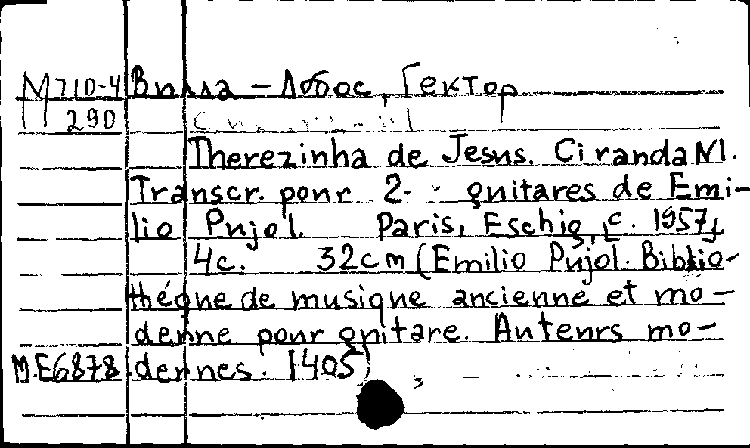 М710-4 Вилла-Лобос, Гектор
290
Therezinha de Jesus. Ciranda N1.
Transcr. pour 2- guitares de Emi-
lio Pujol. Paris, Eschig, [c. 1957]
4c. 32cm (Emilio Pujol. Biblio-
théque de musique ancienne et mo-
denne pour guitare. Auteurs mo-
M.E6878 dennes. 1405)